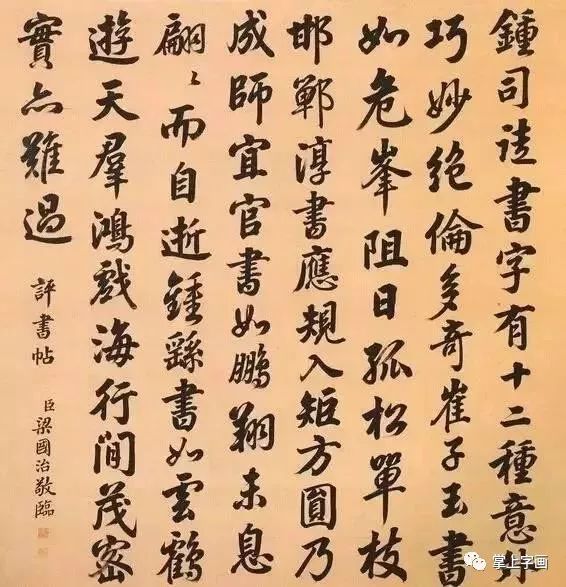 鍾司徒書字有十二種意外
巧妙絕倫多奇崔子玉書
如危峯阻日孤松單枝
邯鄲淳書應規入矩方圓乃
成師宜官書如鵬翔未息
翩〻而自逝鍾繇書如雲鶴
遊天羣鴻戲海行間茂密
實亦難過
評書帖
臣梁國治敬臨
掌上字画